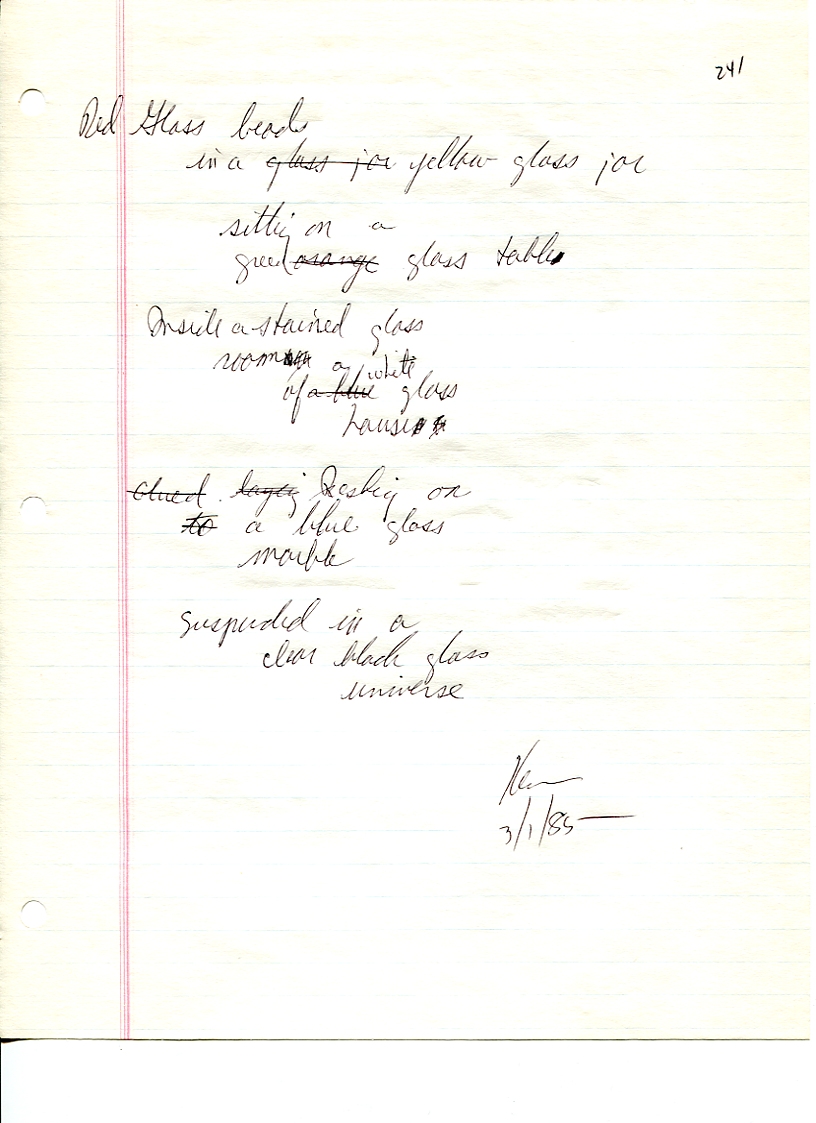 241
Red Glass beads
in a glass jar yellow glass jar
sitting on a
green orange glass table
Inside a stained glass
room a white
of a blue glass
house
Glued laying Resting on
to a blue glass
marble
suspended in a
clear black glass
universe
3/1/85